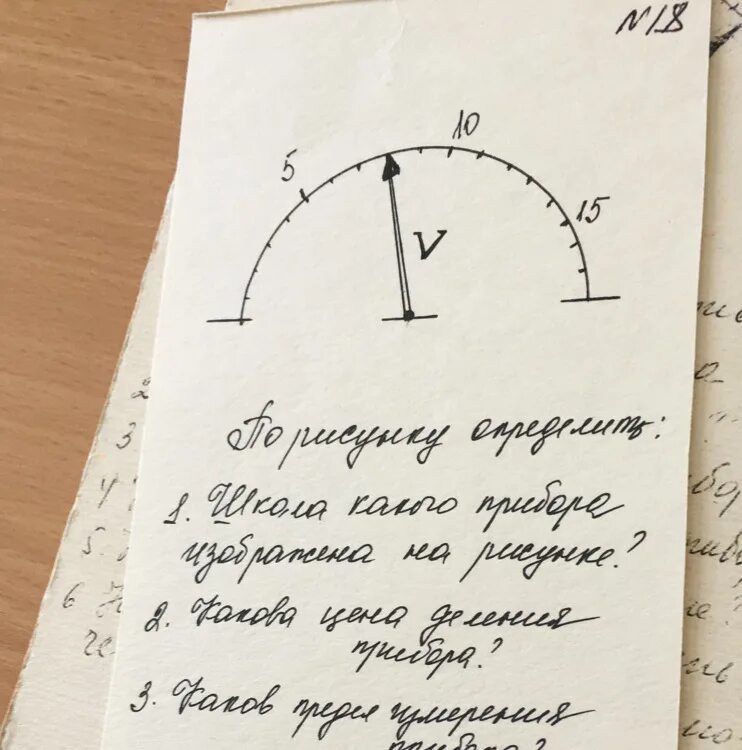 N18
5
10
15
V
По рисунку определить:
1. Шкала какого прибора
изображена на рисунке?
2. Какова цена деления
прибора?
3. Каков предел измерения
прибора?
2
3
4
5.
6